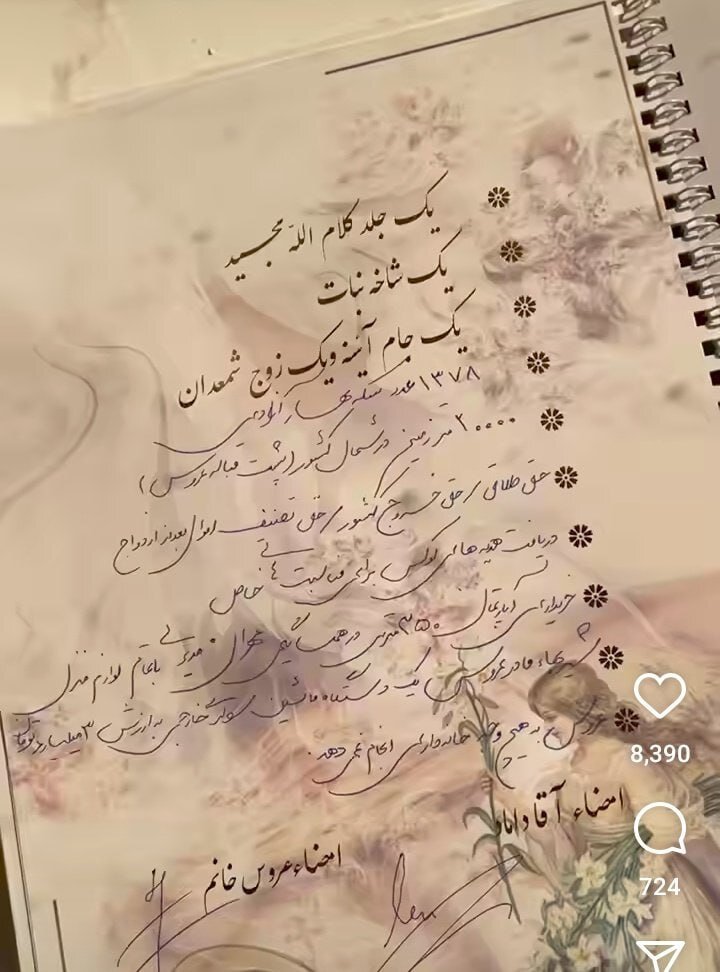 یک جلد کلام الله مجید
یک شاخه نبات
یک جام آئینه ویک زوج شمعدان
۱۳۷۸ عدد سکه بهار آزادی
۲۰۰۰۰ متر زمین در شمال کشور (پشت قباله عروس)
حق طلاق، حق خروج کشور، حق تصنیف اموال بعد از ازدواج
دریافت هدیه های لوکس برای مناسبت های خاص
خریداری آپارتمان ۳۵۰ متری در تهران با تمام لوازم منزل
شیربهاء مادر عروس یک دستگاه ماشین سواری خارجی به ارزش ۳ میلیارد تومان
عروس به هیچ وجه خانه داری انجام نمی دهد.
امضاء آقا داماد
امضاء عروس خانم
8,390
724